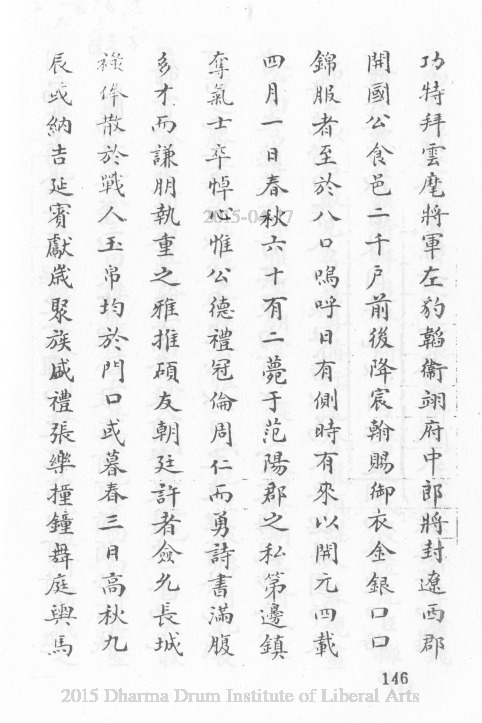 功特拜雲麾將軍左豹韜衞翊府中郎將封遼西郡
開國公食邑二千戶前後降宸翰賜御衣金銀口口
錦服者至於八口嗚呼日有側時有來以開元四載
四月一日春秋六十有二薨于范陽郡之私第邊鎮
奪氣士卒悼心惟公德禮冠倫周仁而勇詩書滿腹
多才而謙朋執重之雅推碩友朝廷許者僉允長城
祿俸散於戰人玉帛均於門口或暮春三日高秋九
辰或納吉延賓獻歲聚族盛禮張樂撞鐘舞庭輿馬
146
2015 Dharma Drum Institute of Liberal Arts